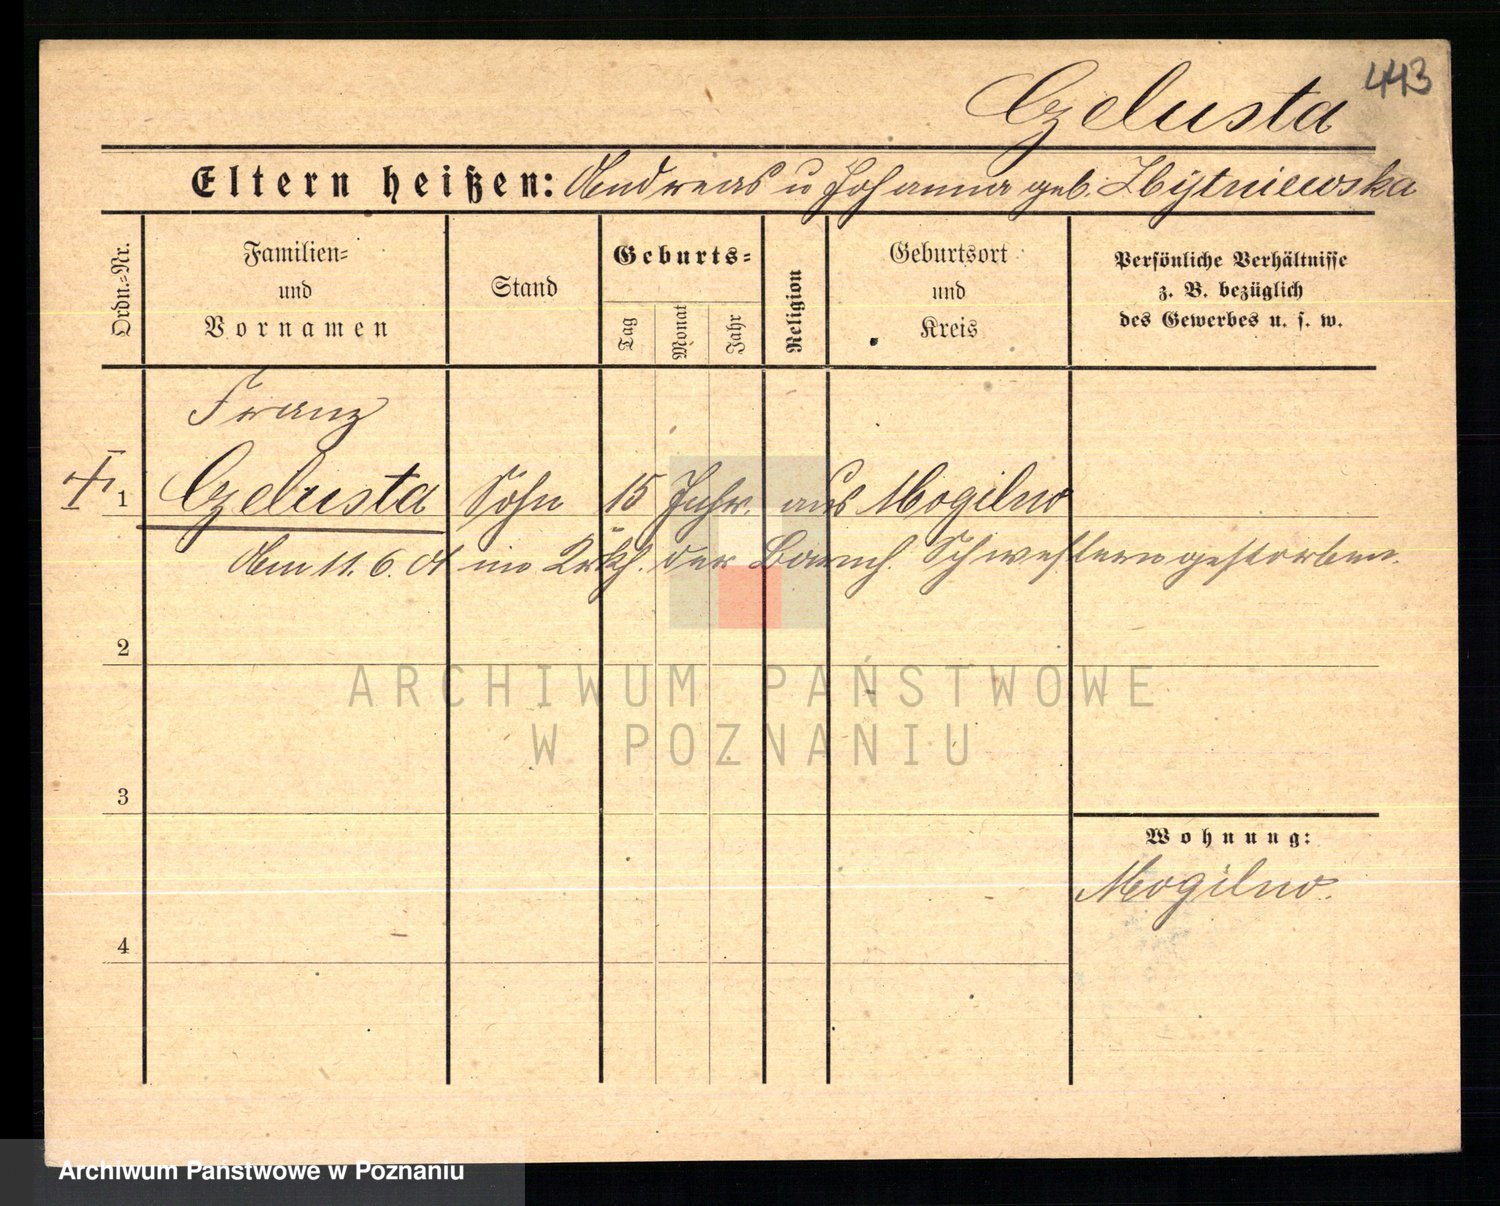 443
Czelusta
Eltern heißen: Andreas u Johanna geb.
Ordn.-Nr.
Familien-
und
Vornamen
Stand
Geburts-
Tag
Monat
Jahr
Religion
Geburtsort
und
Kreis
Persönliche Verhältnisse
z. B. bezüglich
des Gewerbes u. s. w.
Franz
1 Czelusta Sohn 15 Jahr. aus Mogilno
Am 11. 6. 01 im Krkh. der Barmh. Schwestern gestorben.
2
3
4
Wohnung:
Mogilno.
ARCHIWUM PAŃSTWOWE
W POZNANIU
Archiwum Państwowe w Poznaniu